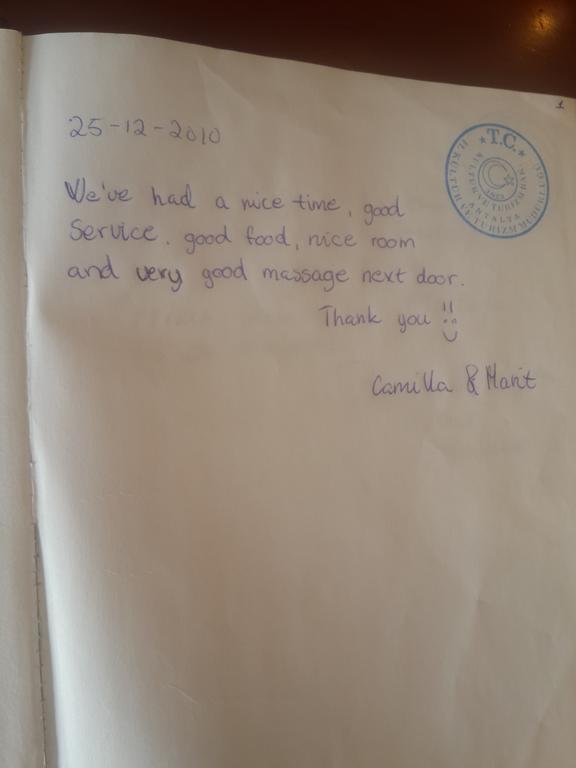 1
25-12-2010
T.C.
KÜLTÜR VE TURİZM BAK.
ANTALYA
İL KÜLTÜR VE TURİZM MÜDÜRLÜĞÜ
We've had a nice time, good
Service. good food, nice room
and very good massage next door.
Thank you !! :)
Camilla & Marit